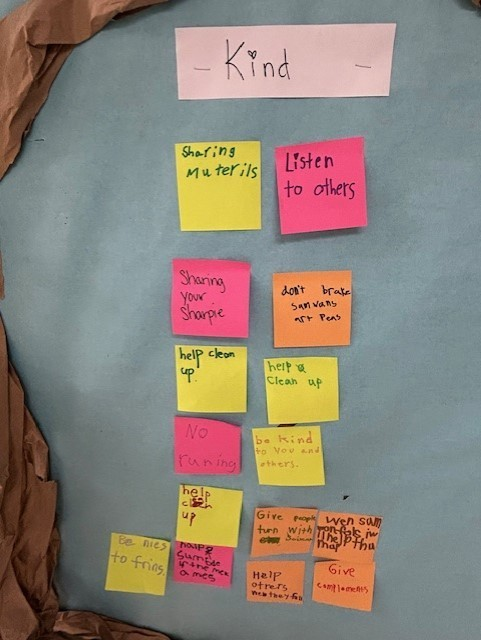 - Kind -
Sharing
Muterils
Listen
to others
Sharing
your
Sharpie
don't brake
samvans
art Pens
help clean
up.
help
Clean up
No
runing
be kind
to you and
others.
help
up
Give people
turn with
wen sam
help
Be nies
to frins.
sumbde
a mes
Help
others
Give
complaments